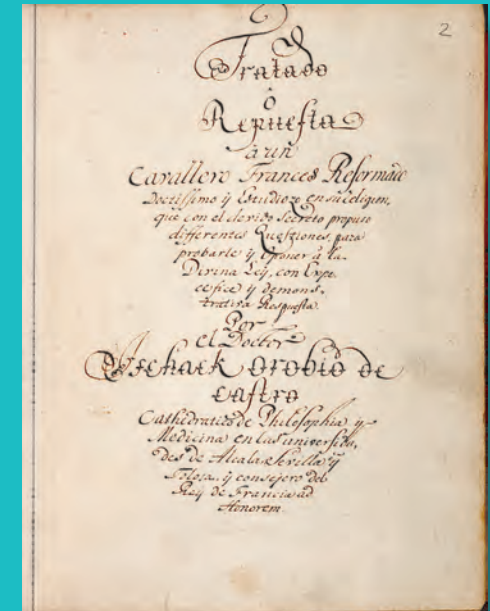 2
Tratado
ô
Repuesta
â un
Cavallero Frances Reformado
Doctissimo ÿ Estudiozo en su Religion,
que con el devido Secreto propuso
differentes Questiones, para
probarle ÿ Oponer â la
Divina Leÿ, con Expe
cifica ÿ demons-
trativa Respuesta.
Por
el Doctor
Ischack Orobio de
Castro
Cathedratico de Philosophia ÿ
Medicina en las universida,
des de Alcala, Sevilla ÿ
Tolosa. ÿ consejero del
Reÿ de Francia ad
Honorem.